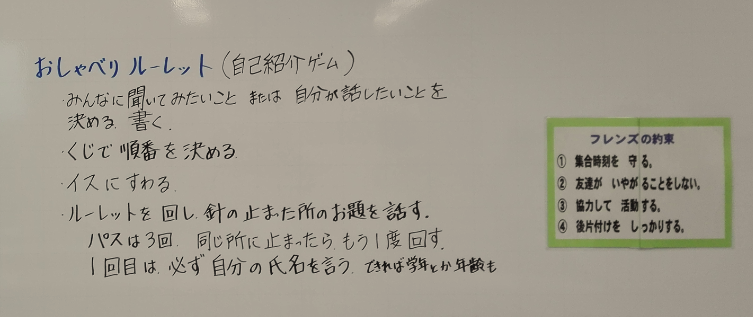 おしゃべり ルーレット (自己紹介ゲーム)
・みんなに聞いてみたいこと または 自分が話したいことを
決める 書く.
・くじで順番を決める
・イスにすわる
・ルーレットを回し、針の止まった所のお題を話す.
パスは3回. 同じ所に止まったら、もう1度回す.
1回目は、必ず自分の氏名を言う. できれば学年とか年齢も
フレンズの約束
① 集合時刻を 守る。
② 友達が いやがることをしない。
③ 協力して 活動する。
④ 後片付けを しっかりする。